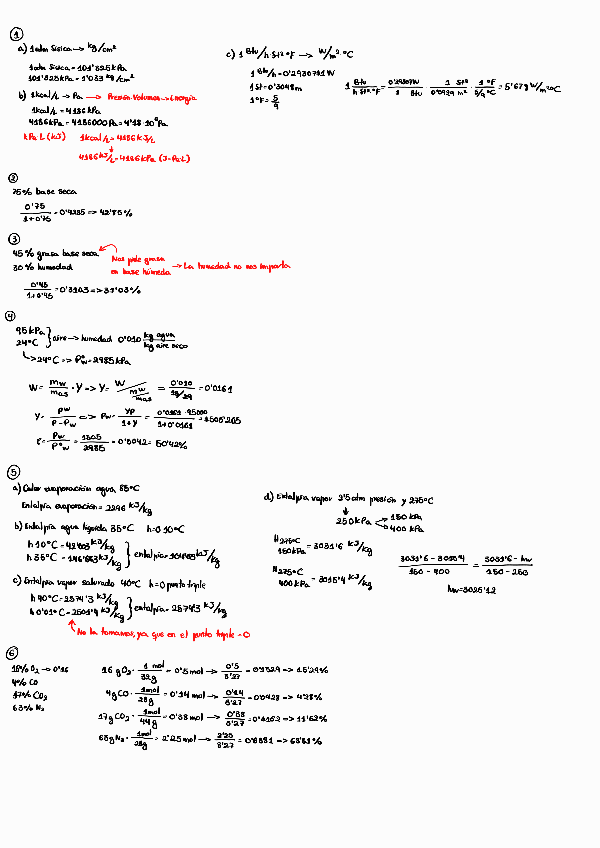 1
a) 1 atm física → kg/cm²
1 atm física = 101'325 kPa
101'325 kPa = 1'033 kg/cm²
b) 1 kcal/L → Pa → Presión·Volumen → Energía
1 kcal/L = 4186 kPa
4186 kPa = 4186000 Pa = 4'18·10⁶ Pa
kPa·L (kJ) 1 kcal/L = 4186 kJ/L
4186 kJ/L = 4186 kPa (J = Pa·L)
c) 1 Btu/h ft² °F → W/m² °C
1 Btu/h = 0'2930711 W
1 ft = 0'3048 m
1 °F = 5/9
2
75% base seca
0'75/1+0'75 = 0'4285 => 42'85%
3
45% grasa base seca
30% humedad
Nos pide grasa
en base húmeda → La humedad no nos importa
0'45/1+0'45 = 0'3103 => 31'03%
4
95 kPa
24°C
aire → humedad 0'010 kg agua/kg aire seco
24°C => P°w = 2985 kPa
W = mw/mas · Y → Y = W/(mw/mas) = 0'010/(18/29) = 0'0161
Y = Pw/P-Pw => Pw = YP/1+Y = 0'0161·95000/1+0'0161 = 1505'265
φ = Pw/P°w = 1505/2985 = 0'5042 = 50'42%
5
a) Calor evaporación agua 85°C
Entalpía evaporación = 2296 kJ/kg
b) Entalpía agua líquida 35°C h=0 10°C
entalpía
c) Entalpía vapor saturado 40°C h=0 punto triple
h 40°C = 2574'3 kJ/kg
h 0'01°C = 2501'4 kJ/kg
entalpía = 2574'3 kJ/kg
No la tomamos, ya que en el punto triple = 0
d) Entalpía vapor 2'5 atm presión y 275°C
250 kPa
150 kPa
400 kPa
H 275°C 150 kPa = 3031'6 kJ/kg
H 275°C 400 kPa = 3015'4 kJ/kg
3031'6 - 3015'4/150 - 400 = 3031'6 - hw/150 - 250
hw = 3025'12
6
16% O₂ → 0'16
4% CO
17% CO₂
63% N₂
16 g O₂ · 1 mol/32g = 0'5 mol → 0'5/3'27 = 0'1529 => 15'29%
4g CO · 1mol/28g = 0'14 mol → 0'14/3'27 = 0'0428 => 4'28%
17g CO₂ · 1mol/44g = 0'38 mol → 0'38/3'27 = 0'1162 => 11'62%
63g N₂ · 1mol/28g = 2'25 mol → 2'25/3'27 = 0'6881 => 68'81%